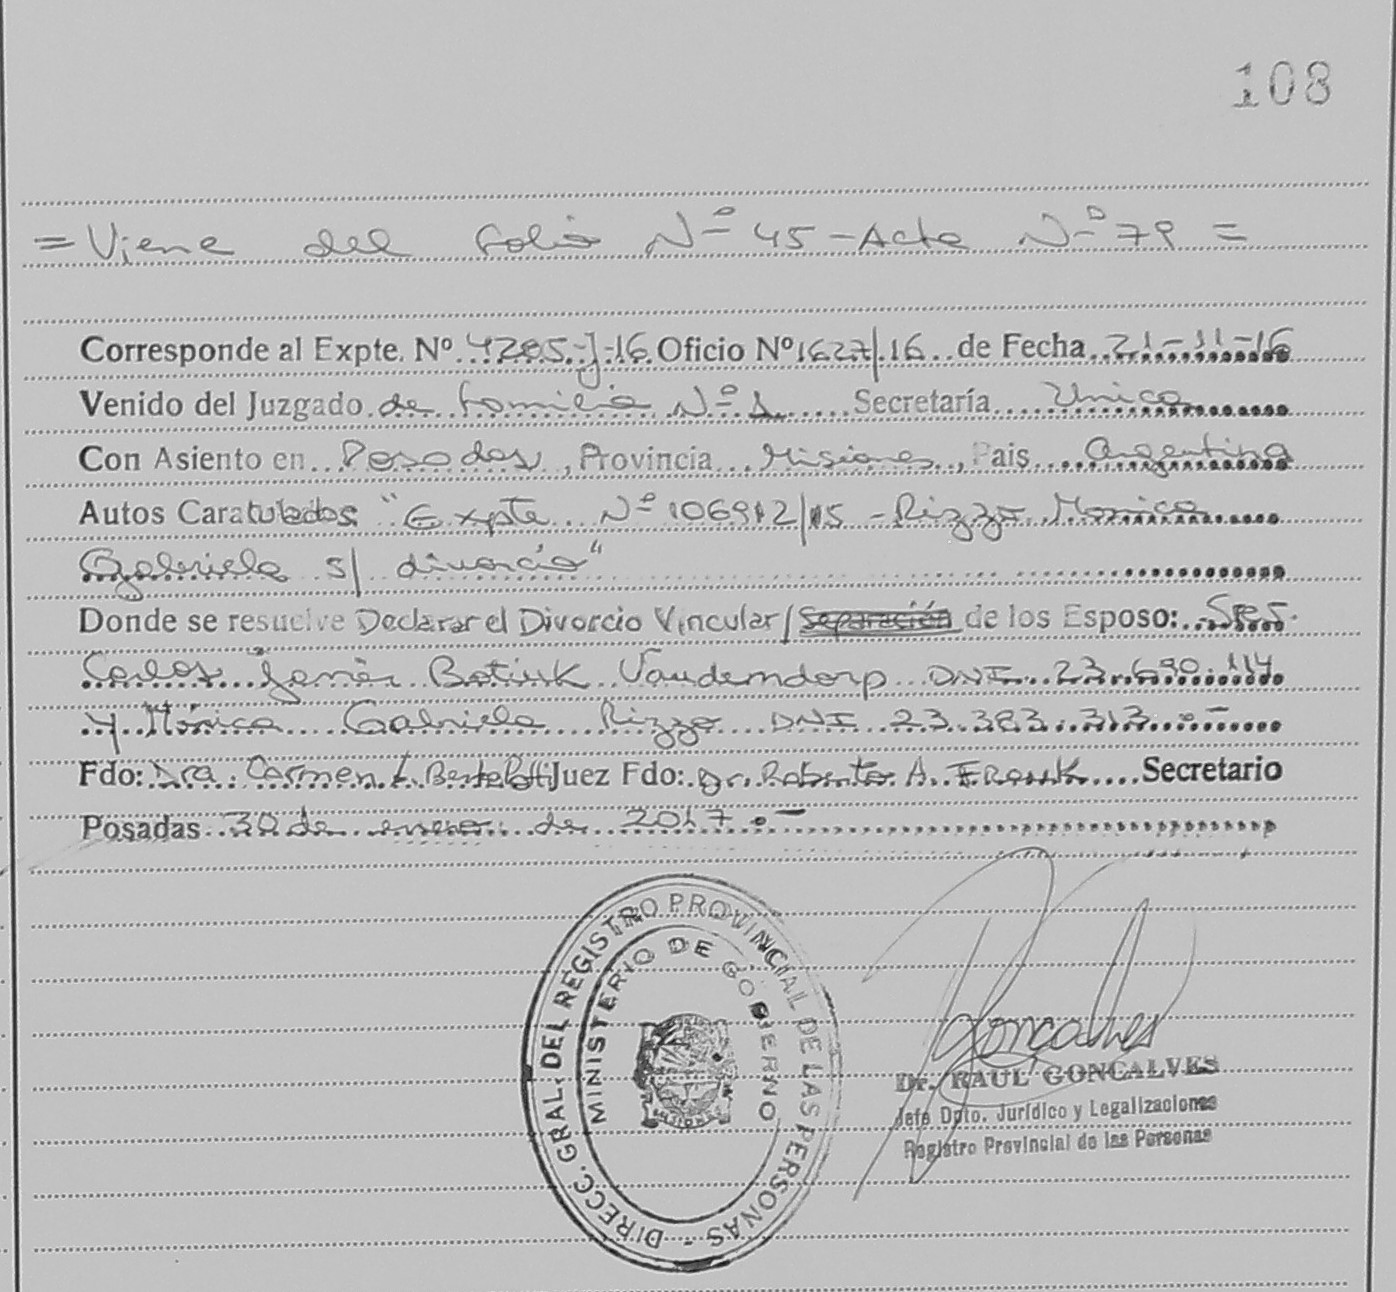 108
= Viene del folio Nº 45 - Acta Nº 79 =
Corresponde al Expte. Nº 4205-J-16 Oficio Nº 1627/16 de Fecha 21-11-16
Venido del Juzgado de Familia Nº 1 Secretaría Unica
Con Asiento en Posadas, Provincia Misiones, Pais Argentina
Autos Caratulados: "Expte Nº 106912/15 - Rizzo Monica
Gabriela s/ divorcio"
Donde se resuelve Declarar el Divorcio Vincular/Separación de los Esposo: Sres.
Carlos Javier Batiuk Vandemdorp DNI 23.690.114
y Mónica Gabriela Rizzo DNI 23.383.313.-
Fdo: Dra. Carmen L. Bertolotti Juez Fdo: Dr. Roberto A. Frank Secretario
Posadas 30 de enero de 2017.-
DIRECC. GRAL. DEL REGISTRO PROVINCIAL DE LAS PERSONAS -
MINISTERIO DE GOBIERNO
Goncalves
Dr. RAUL GONCALVES
Jefe Dpto. Jurídico y Legalizaciones
Registro Provincial de las Personas